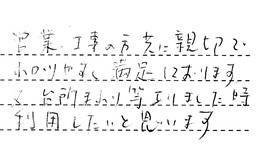 営業、工事の方共に親切で
わかりやすく満足しております
又、台所まわり等工事しました時
利用したいと思います